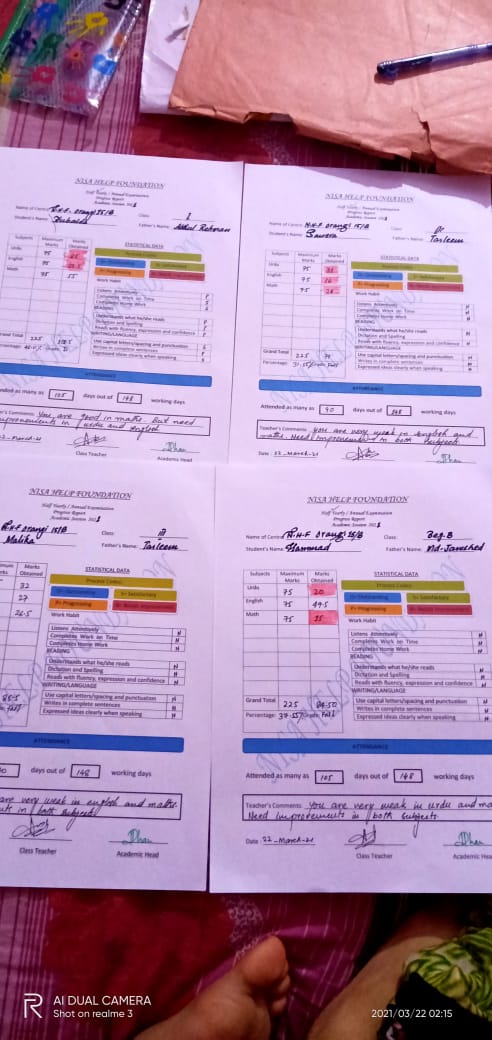 NISA HELP FOUNDATION
Half Yearly / Annual Examination
Progress Report
Academic Session 2021
Name of Centre N.H.F Orangi 15/B Class: I
Student's Name: Father's Name: Abdul Rehman
Subjects Maximum Marks Marks Obtained
Urdu 75
English 75
Math 75 55
STATISTICAL DATA
Process Codes:
O= Outstanding S= Satisfactory
P= Progressing N= Needs Improvement
Work Habit
Listens Attentively
Completes Work on Time
Completes Home Work
READING
Understands what he/she reads
Dictation and Spelling
Reads with fluency, expression and confidence
WRITING/LANGUAGE
Use capital letters/spacing and punctuation
Writes in complete sentences
Expressed ideas clearly when speaking
Grand Total 225
ATTENDANCE
nded as many as 105 days out of 148 working days
r's Comments: You are good in maths. But need
improvements in urdu and english
22-March-21
Class Teacher Academic Head
NISA HELP FOUNDATION
Half Yearly / Annual Examination
Progress Report
Academic Session 2021
Name of Centre: N.H.F Orangi 15/B Class:
Student's Name: Sawera Father's Name: Tasleem
Subjects Maximum Marks Marks Obtained
Urdu 75
English 75
Math 75
STATISTICAL DATA
Process Codes:
O= Outstanding S= Satisfactory
P= Progressing N= Needs Improvement
Work Habit
Listens Attentively N
Completes Work on Time N
Completes Home Work N
READING
Understands what he/she reads N
Dictation and Spelling N
Reads with fluency, expression and confidence N
WRITING/LANGUAGE
Use capital letters/spacing and punctuation N
Writes in complete sentences N
Expressed ideas clearly when speaking N
Grand Total 225
Percentage: 31.55% Grade: Fail
ATTENDANCE
Attended as many as 90 days out of 148 working days
Teacher's Comments: You are very weak in english and
maths. Need improvements in both subjects
Date: 22-March-21
NISA HELP FOUNDATION
Half Yearly / Annual Examination
Progress Report
Academic Session 2021
N.H.F Orangi 15/B Class: III
Malika Father's Name: Tasleem
mum Marks Obtained
32
27
26.5
STATISTICAL DATA
Process Codes:
O= Outstanding S= Satisfactory
P= Progressing N= Needs Improvement
Work Habit
Listens Attentively N
Completes Work on Time N
Completes Home Work N
READING
Understands what he/she reads N
Dictation and Spelling N
Reads with fluency, expression and confidence N
WRITING/LANGUAGE
Use capital letters/spacing and punctuation N
Writes in complete sentences N
Expressed ideas clearly when speaking N
85.5
ATTENDANCE
days out of 148 working days
are very weak in english and maths.
in both subjects
Class Teacher Academic Head
NISA HELP FOUNDATION
Half Yearly / Annual Examination
Progress Report
Academic Session 2021
Name of Centre: N.H.F Orangi 15/B Class: Beg.B
Student's Name: Hammad Father's Name: Md-Jamshed
Subjects Maximum Marks Marks Obtained
Urdu 75 20
English 75 49.5
Math 75 15
STATISTICAL DATA
Process Codes:
O= Outstanding S= Satisfactory
P= Progressing N= Needs Improvement
Work Habit
Listens Attentively N
Completes Work on Time N
Completes Home Work N
READING
Understands what he/she reads N
Dictation and Spelling N
Reads with fluency, expression and confidence N
WRITING/LANGUAGE
Use capital letters/spacing and punctuation N
Writes in complete sentences N
Expressed ideas clearly when speaking N
Grand Total 225 84.50
Percentage: 37.55% Grade: Fail
ATTENDANCE
Attended as many as 105 days out of 148 working days
Teacher's Comments: You are very weak in urdu and ma
Need improvements in both subjects.
Date: 22-March-21
Class Teacher Academic Hea
R AI DUAL CAMERA
Shot on realme 3
2021/03/22 02:15